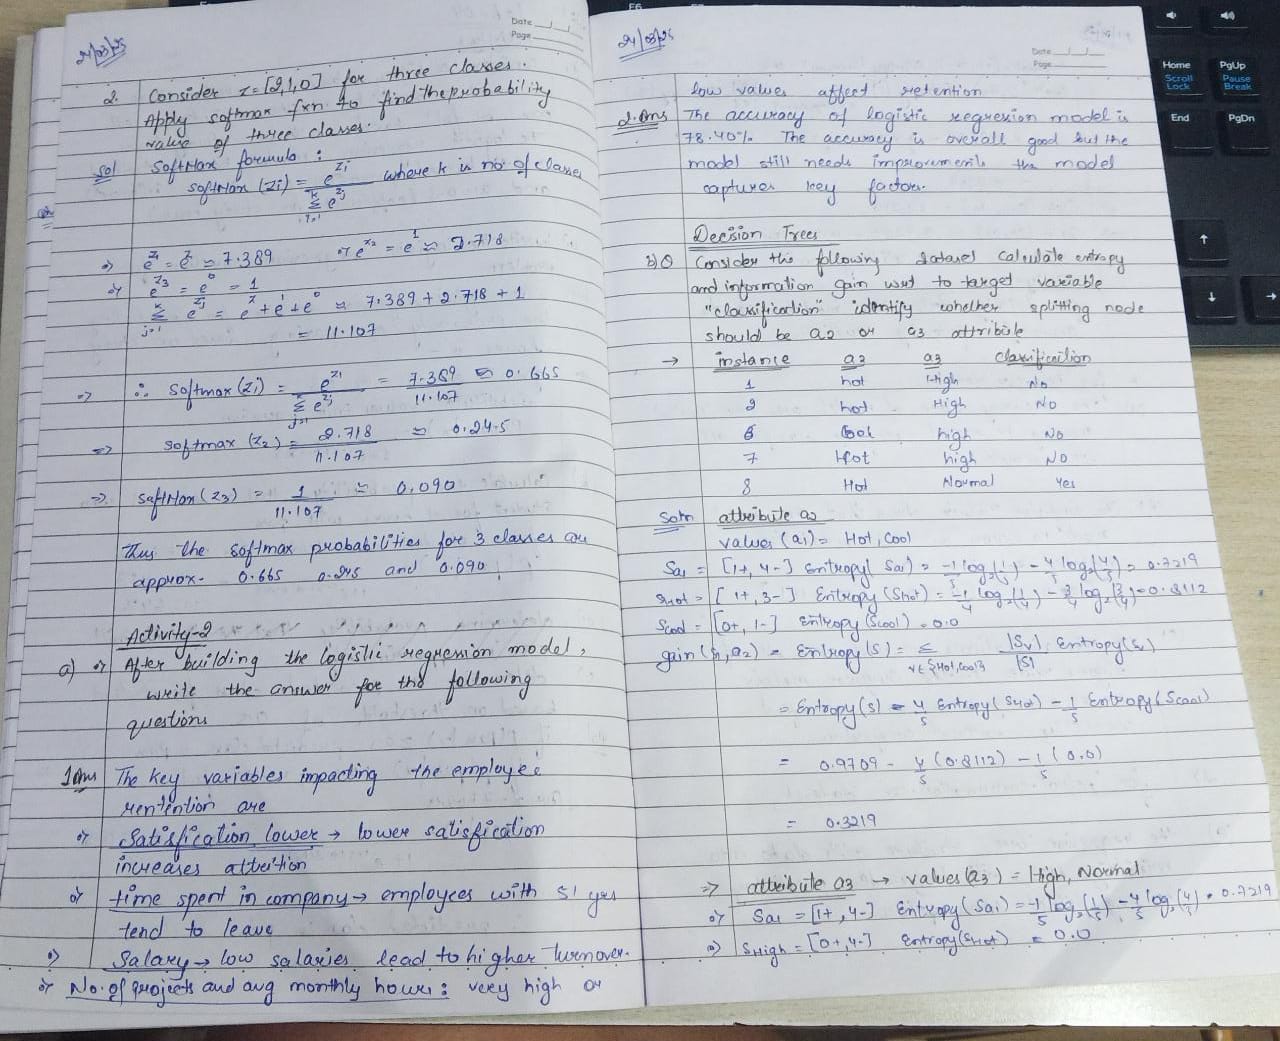 Date
Page
24/03/25
2. Consider z = [2,1,0] for three classes.
Apply softmax fxn to find the probability
value of three classes.
Sol SoftMax formula :
softMax (zi) = e^zi / Σ e^zj where k is no of classes
=> e^z1 = e^2 ≈ 7.389 e^z2 = e^1 ≈ 2.718
e^z3 = e^0 = 1
Σ e^zj = e^2 + e^1 + e^0 ≈ 7.389 + 2.718 + 1
= 11.107
=> ∴ Softmax (z1) = e^z1 / Σ e^zj = 7.389 / 11.107 ≈ 0.665
=> softmax (z2) = 2.718 / 11.107 ≈ 0.245
=> softMax (z3) = 1 / 11.107 ≈ 0.090
Thus the softmax probabilities for 3 classes are
approx- 0.665 0.245 and 0.090
Activity-2
a) After building the logistic regression model,
write the answer for the following
questions
1 Ans The key variables impacting the employee
rentention are
Satisfication lower → lower satisfication
increases attrition
time spent in company → employees with 51 yrs
tend to leave
Salary → low salaries lead to higher turnover.
No. of projects and avg monthly hours : very high or
Date
Page
24/03/25
low values affect retention
2. Ans The accuracy of logistic regression model is
78.40%. The accuracy is overall good but the
model still needs improvements the model
captures key factors.
Decision Trees
b) Q Consider the following dataset calculate entropy
and information gain wrt to target variable
"classification" identify whether splitting node
should be a2 or a3 attribute
→ instance a2 a3 classification
1 hot High No
2 hot High No
6 Cool high No
7 Hot high NO
8 Hot Normal Yes
Soln attribute a2
values (a1) = Hot, Cool
Sa1 = [1+, 4-] Entropy (Sa1) = -1/5 log2(1/5) - 4/5 log2(4/5) = 0.7219
SHot = [1+, 3-] Entropy (SHot) = -1/4 log2(1/4) - 3/4 log2(3/4) = 0.8112
Scool = [0+, 1-] Entropy (Scool) = 0.0
gain (, a2) = Entropy(S) = Σ v∈{Hot, Cool} |Sv| / |S| Entropy(Sv)
= Entropy(S) - 4/5 Entropy(SHot) - 1/5 Entropy(Scool)
= 0.9709 - 4/5 (0.8112) - 1/5 (0.0)
= 0.3219
=> attribute a3 → values (a3) = High, Normal
Sa1 = [1+, 4-] Entropy (Sa1) = -1/5 log2(1/5) - 4/5 log2(4/5) = 0.7219
SHigh = [0+, 4-] Entropy(SHot) = 0.0
F6
Home
Scroll
Lock
PgUp
Pause
Break
End
PgDn